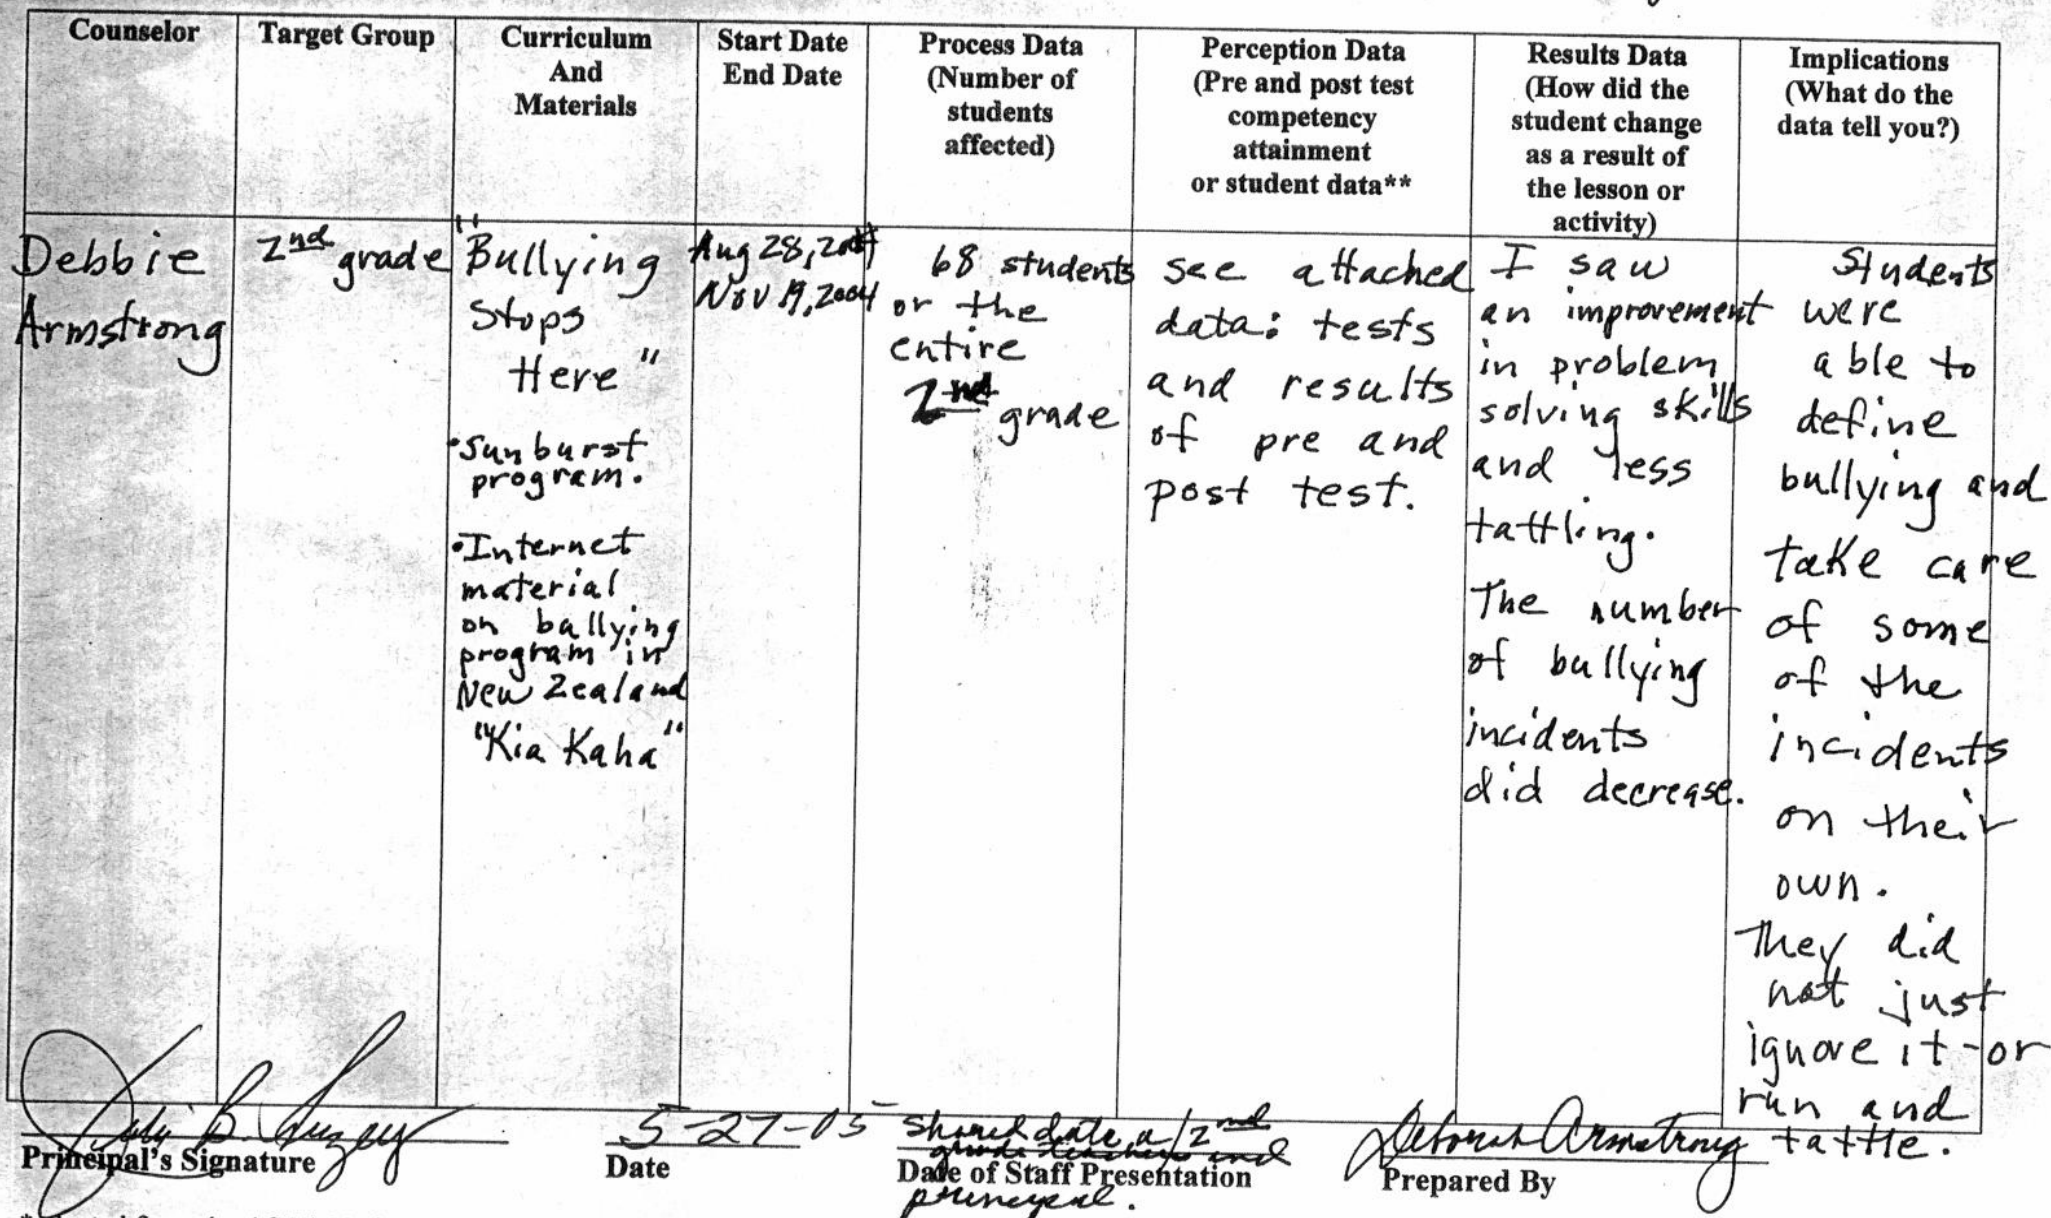 Counselor
Target Group
Curriculum
And
Materials
Start Date
End Date
Process Data
(Number of
students
affected)
Perception Data
(Pre and post test
competency
attainment
or student data**
Results Data
(How did the
student change
as a result of
the lesson or
activity)
Implications
(What do the
data tell you?)
Debbie
Armstrong
2nd grade
"Bullying
Stops
Here"
•Sunburst
program.
•Internet
material
on bullying
program in
New Zealand
"Kia Kaha"
Aug 28, 2004
Nov 19, 2004
68 students
or the
entire
2nd grade
see attached
data: tests
and results
of pre and
post test.
I saw
an improvement
in problem
solving skills
and less
tattling.
The number
of bullying
incidents
did decrease.
Students
were
able to
define
bullying and
take care
of some
of the
incidents
on their
own.
They did
not just
ignore it-or
run and
tattle.
5-27-05
Shared data w/2nd
grade teachers and
principal.
Deborah Armstrong
Principal's Signature
Date
Date of Staff Presentation
Prepared By